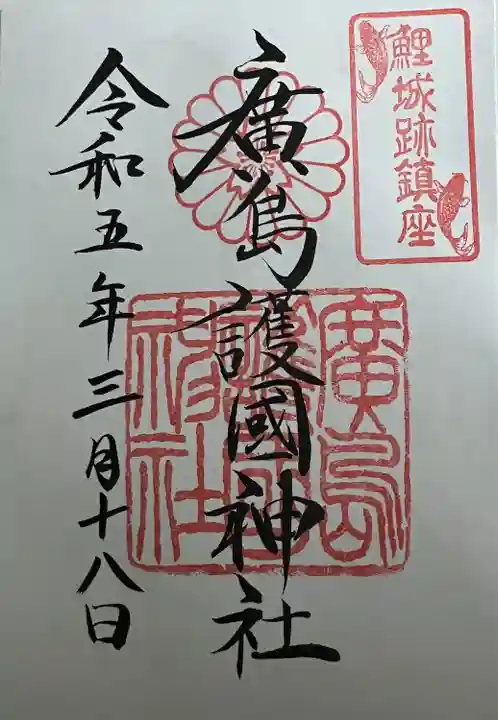 鯉城跡鎮座
廣島護國神社
廣島護國神社
令和五年三月十八日